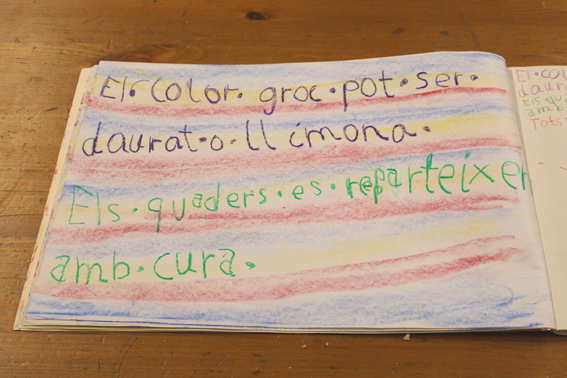 El·color·groc·pot·ser·
daurat·o·llimona.
Els·quaders·es·reparteixen
amb·cura.
El·co
daura
Els·qu
amb·
Tots